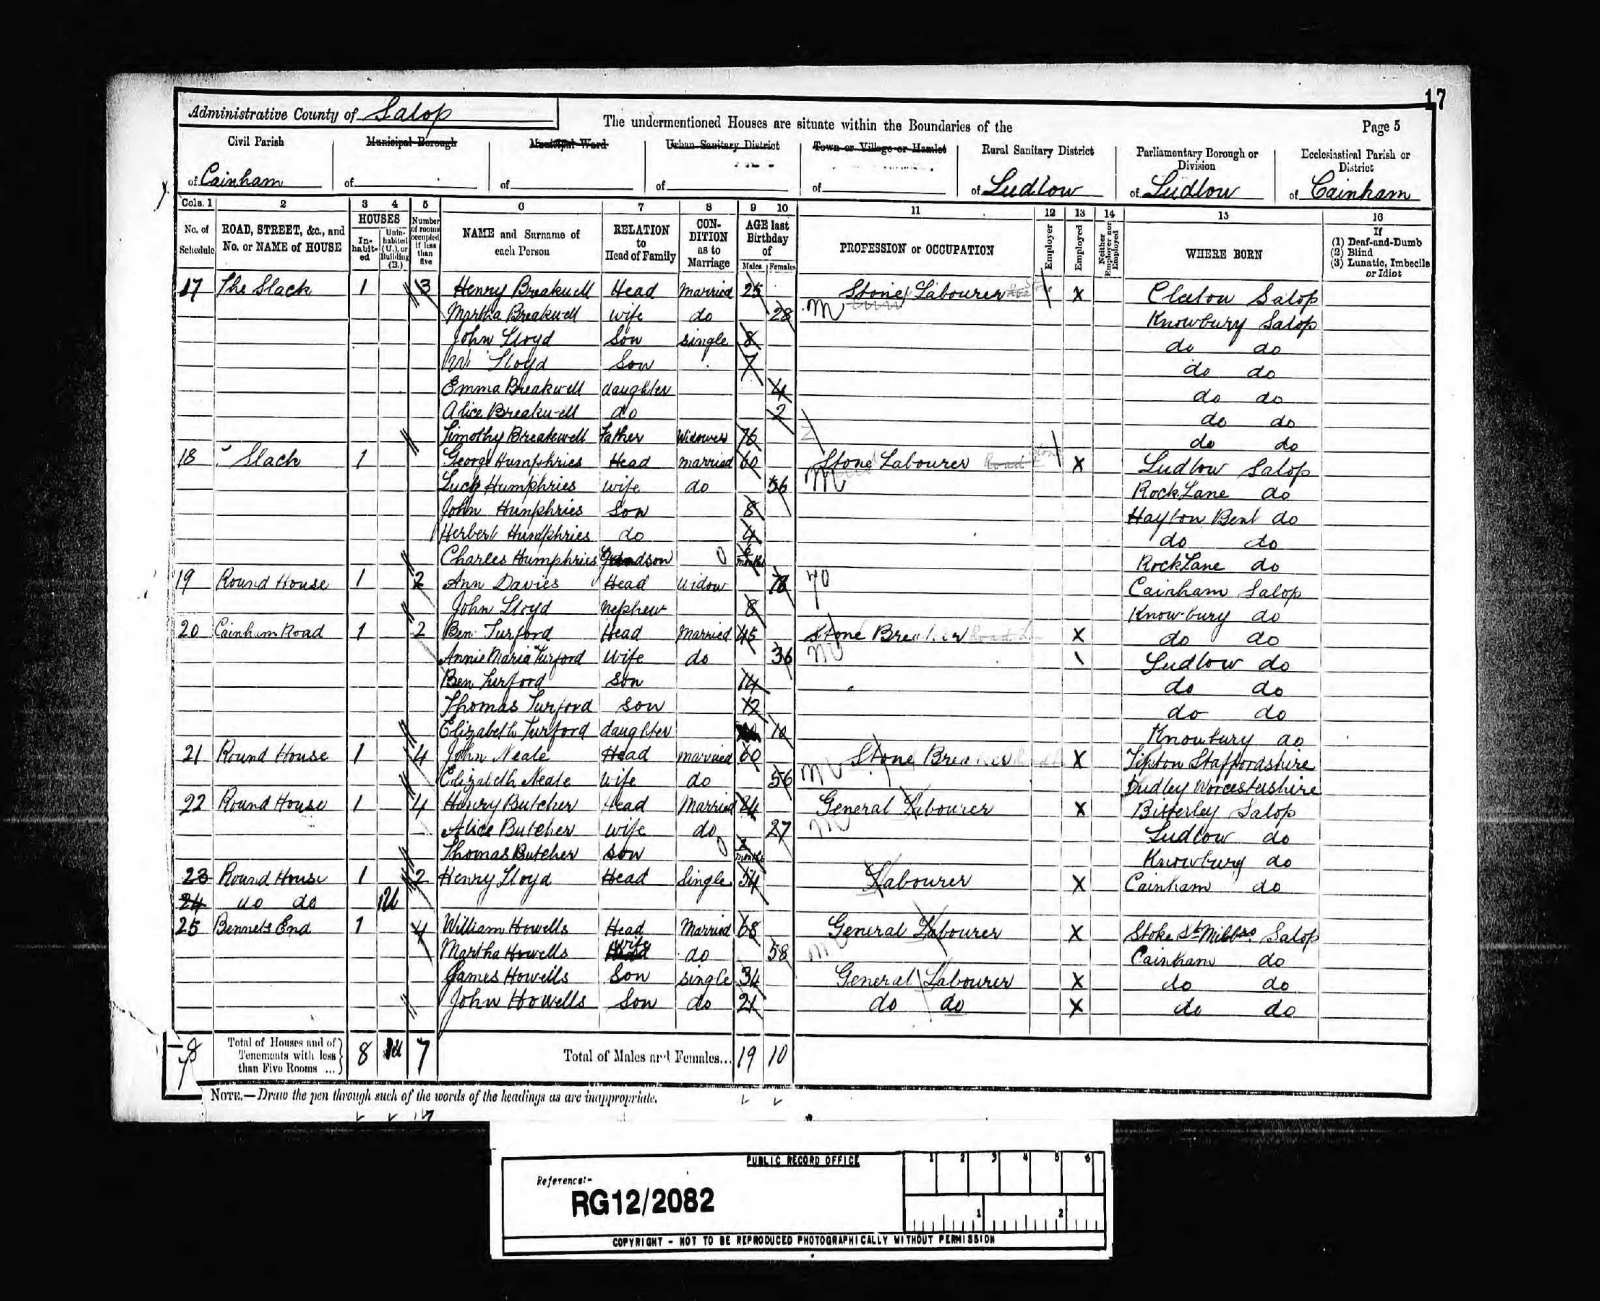 17
Administrative County of Salop
The undermentioned Houses are situate within the Boundaries of the
Page 5
Civil Parish
Municipal Borough
Municipal Ward
Urban Sanitary District
Town or Village or Hamlet
Rural Sanitary District
Parliamentary Borough or Division
Ecclesiastical Parish or District
of Cainham of of of of of Ludlow of Ludlow of Cainham
Cols. 1 2 3 4 5 6 7 8 9 10 11 12 13 14 15 16
No. of Schedule
ROAD, STREET, &c., and No. or NAME of HOUSE
HOUSES
In-habit-ed
Unin-habited (U.), or Building (B.)
Number of rooms occupied if less than five
NAME and Surname of each Person
RELATION to Head of Family
CON-DITION as to Marriage
AGE last Birthday of
Males Females
PROFESSION or OCCUPATION
Employer
Employed
Neither Employer nor Employed
WHERE BORN
If
(1) Deaf-and-Dumb
(2) Blind
(3) Lunatic, Imbecile or Idiot
17 The Slack 1 3 Henry Breakwell Head Married 25 Stone Labourer X Cleeton Salop
Martha Breakwell wife do 28 Knowbury Salop
John Lloyd Son single 8 do do
Wm Lloyd Son 7 do do
Emma Breakwell daughter 4 do do
Alice Breakwell do 2 do do
Timothy Breakwell Father Widower 76 do do
18 Slack 1 George Humphries Head Married 60 Stone Labourer X Ludlow Salop
Lucy Humphries wife do 56 Rock Lane do
John Humphries Son 8 Hayton Bent do
Herbert Humphries do 4 do do
Charles Humphries Grandson months Rock Lane do
19 Round House 1 2 Ann Davies Head Widow 78 Cainham Salop
John Lloyd Nephew 8 Knowbury do
20 Cainham Road 1 2 Ben Turford Head Married 45 Stone Breaker X do do
Annie Maria Turford Wife do 36 Ludlow do
Ben Turford Son 14 do do
Thomas Turford Son 12 do do
Elizabeth Turford daughter 10 Knowbury do
21 Round House 1 4 John Neale Head Married 60 Stone Breaker X Tipton Staffordshire
Elizabeth Neale Wife do 56 Dudley Worcestershire
22 Round House 1 4 Henry Butcher Head Married 24 General Labourer X Bitterley Salop
Alice Butcher Wife do 27 Ludlow do
Thomas Butcher Son months Knowbury do
23 Round House 1 2 Henry Lloyd Head Single 54 Labourer X Cainham do
24 do do 1U
25 Bennets End 1 4 William Howells Head Married 68 General Labourer X Stoke St Milbro Salop
Martha Howells wife do 58 Cainham do
James Howells Son single 34 General Labourer X do do
John Howells Son do 21 do do X do do
Total of Houses and of Tenements with less than Five Rooms ... 8 1U 7 Total of Males and Females... 19 10
NOTE.—Draw the pen through such of the words of the headings as are inappropriate.
PUBLIC RECORD OFFICE
Reference:-
RG12/2082
1 2 3 4 5 6
1 2
COPYRIGHT - NOT TO BE REPRODUCED PHOTOGRAPHICALLY WITHOUT PERMISSION